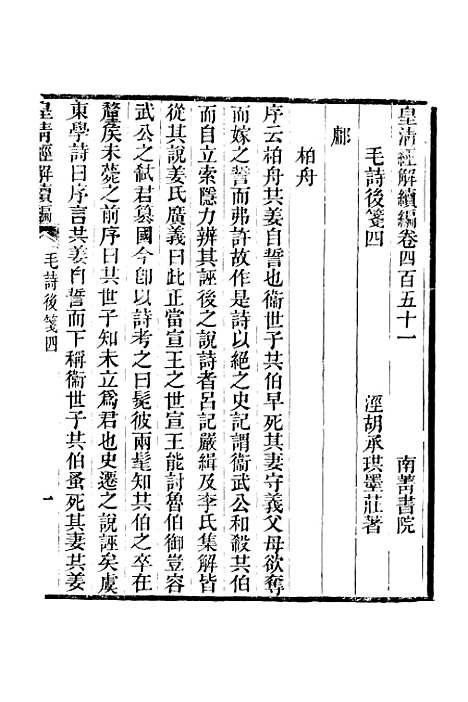 皇清經解續編卷四百五十一 南菁書院
毛詩後箋四 涇胡承珙墨莊著
鄘
柏舟
序云柏舟共姜自誓也衞世子共伯早死其妻守義父母欲奪
而嫁之誓而弗許故作是詩以絕之史記謂衞武公和殺其伯
而自立索隱力辨其誣後之說詩者呂記嚴緝及李氏集解皆
從其說姜氏廣義曰此正當宣王之世宣王能討魯伯御豈容
武公之弒君篡國今卽以詩考之曰髧彼兩髦知共伯之卒在
釐矦未薨之前序曰共世子知未立爲君也史遷之說誣矣虞
東學詩曰序言共姜自誓而下稱衞世子共伯蚤死其妻共姜
皇清經解續編 毛詩後箋四 一